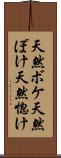 天然ボケ天然
ぼけ天然惚け